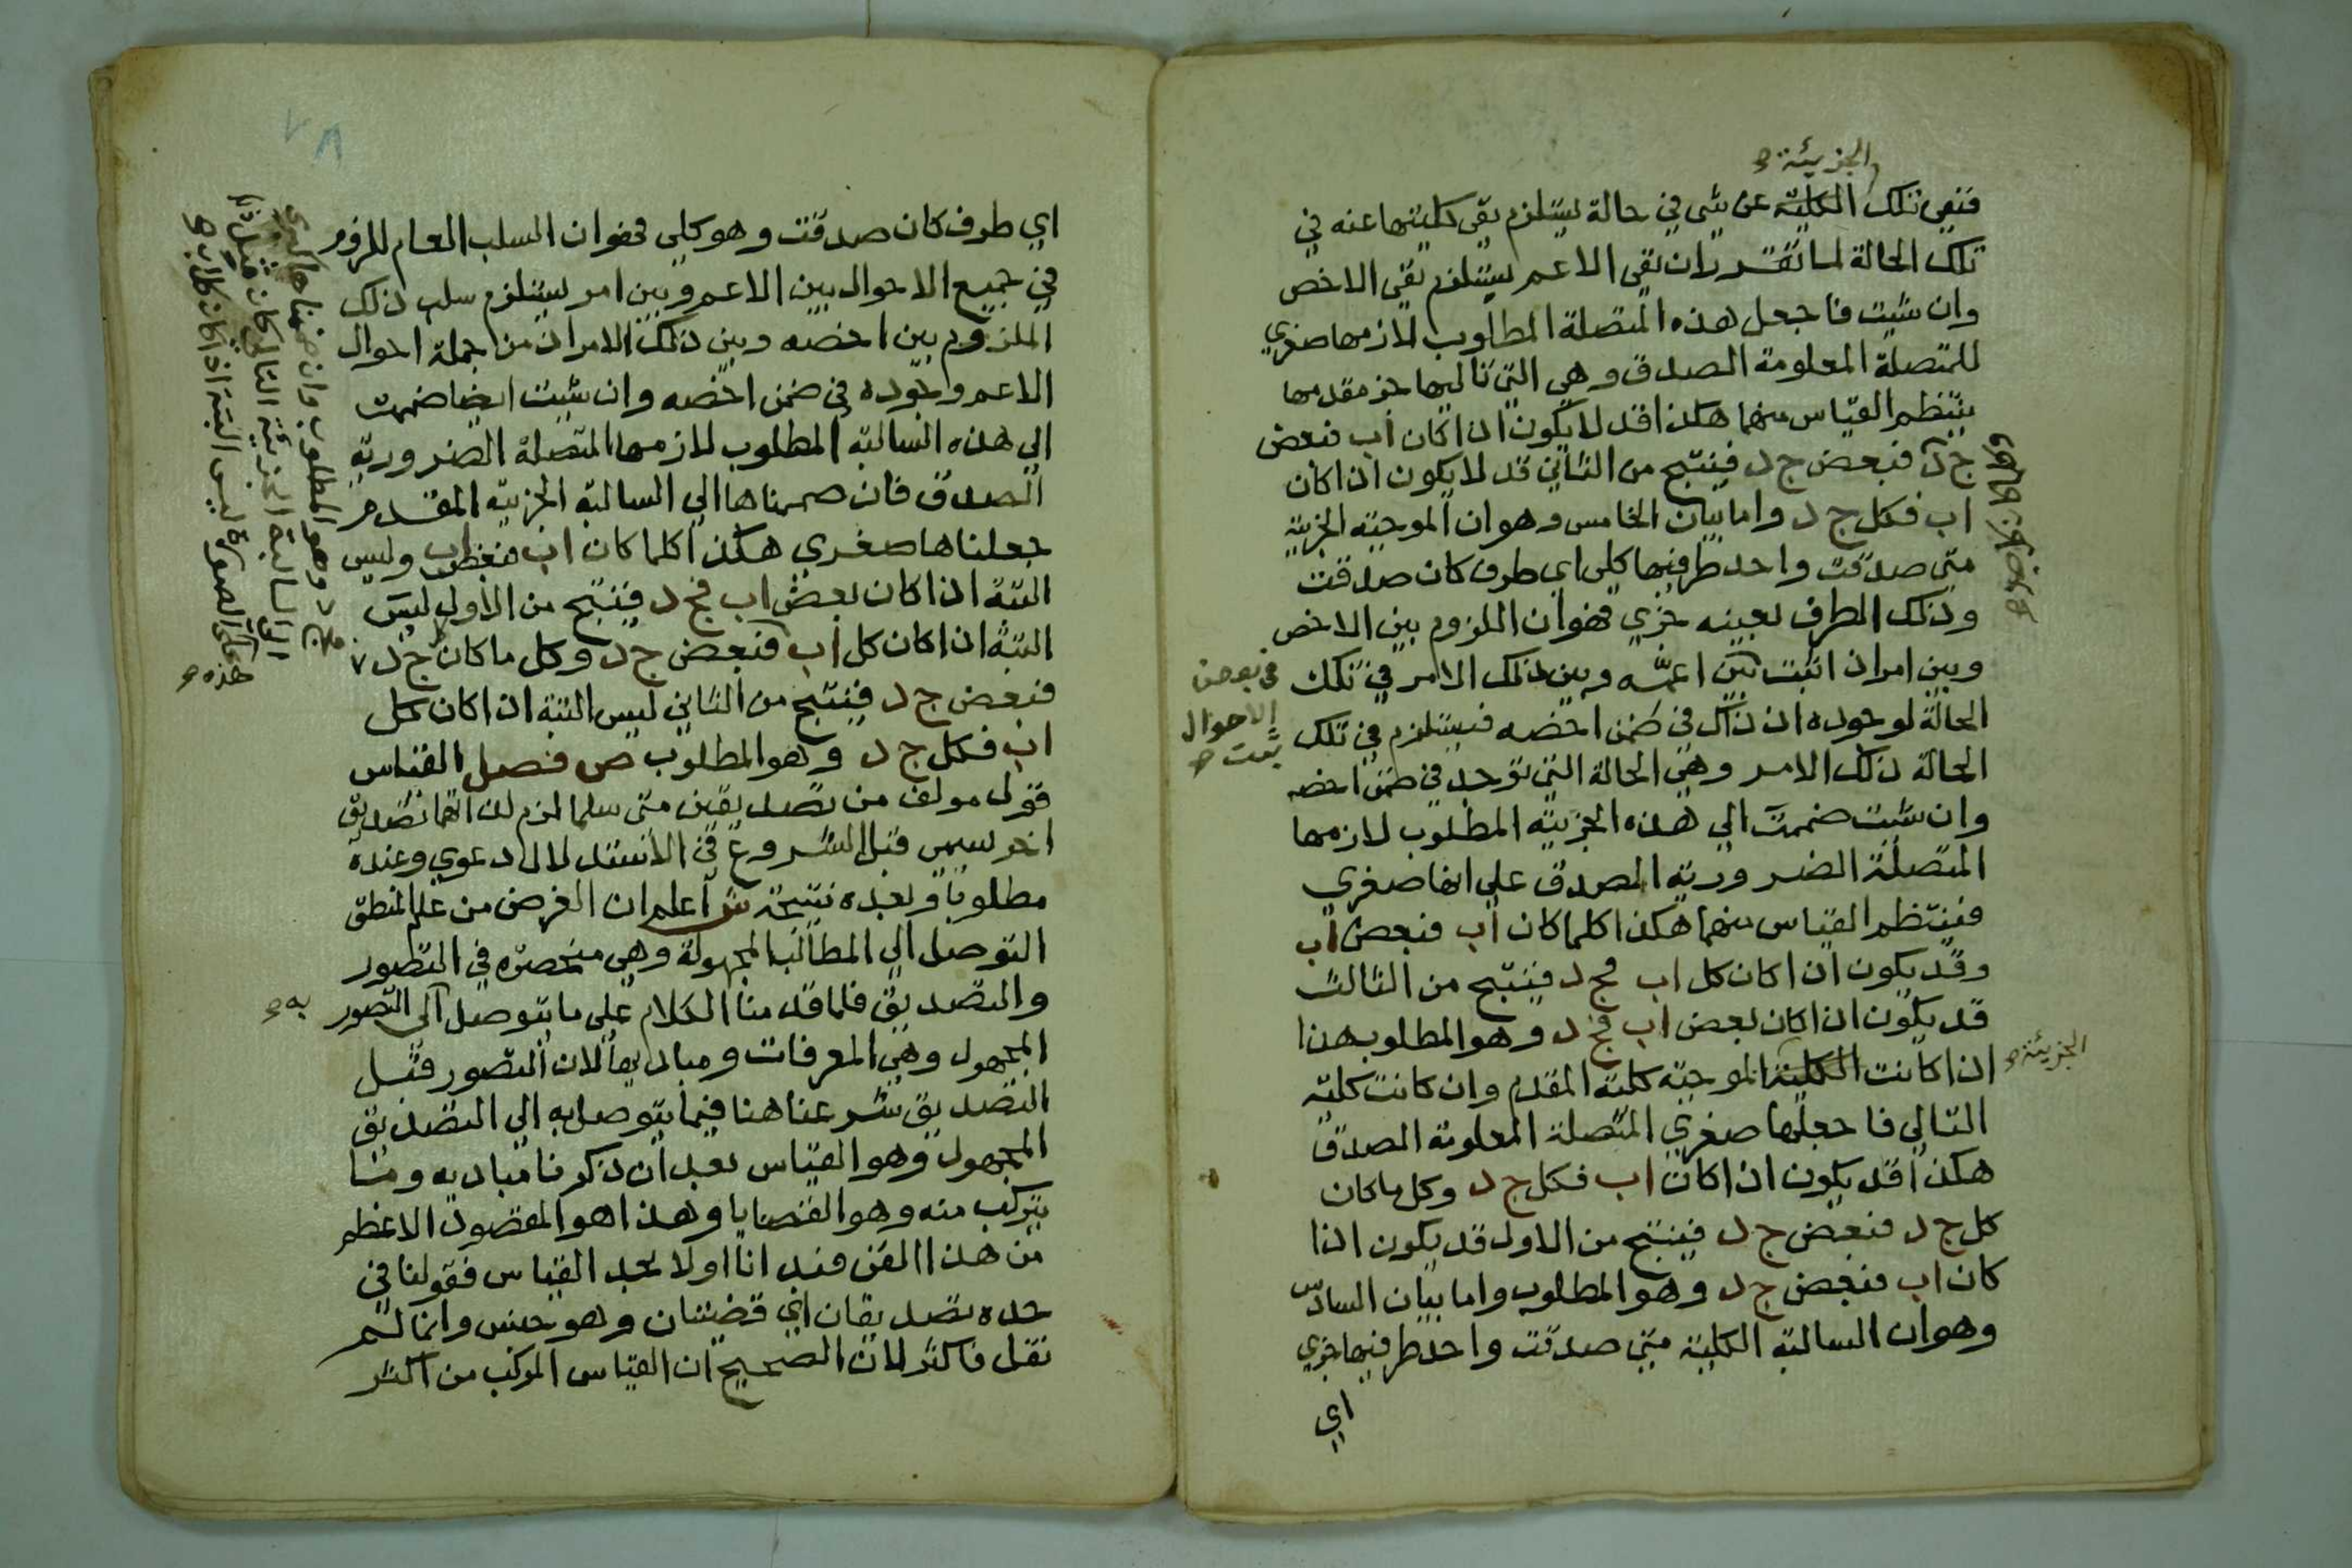 الجزيئة صح
فنفي تلك الكلية عن شي في حالة يستلزم نفي كليتها عنه في
تلك الحالة لما تقرر ان نفي الاعم يستلزم نفي الاخص
وان شيت فاجعل هذه المتصلة المطلوب لازمها صغري
للمتصلة المعلومة الصدق وهي التي تاليها جز مقدمها
ينتظم القياس منهما هكذا قد لا يكون اذا كان اب فبعض
ج د فبعض ج د فينتج من الثاني قد لا يكون اذا كان
اب فكل ج د واما بيان الخامس وهو ان الموجبة الجزيية
متي صدقت واحد طرفيها كلي اي طرف كان صدقت
وذلك الطرف بعينه جزي فهو ان اللزوم بين الاخص
وبين امر اذا اثبت بين اعمه وبين ذلك الامر في تلك
في بعض
الاحوال
ثبت صح
الحالة لوجوده اذ ذاك في ضمن اخصه فيستلزم في تلك
الحالة ذلك الامر وهي الحالة التي توجد في ضمن اخصه
وان شيت ضممت الي هذه الجزيية المطلوب لازمها
المتصلة الضرورية الصدق علي انها صغري
فينتظم القياس منهما هكذا كلما كان اب فبعض اب
وقد يكون اذا كان كل اب فج د فينتج من الثالث
قد يكون اذا كان بعض اب فج د وهو المطلوب هذا
اذا كانت الكلية الموجبة كلية المقدم وان كانت كلية
الجزيئة صح
التالي فاجعلها صغري المتصلة المعلومة الصدق
هكذا قد يكون اذا كان اب فكل ج د وكل ما كان
كل ج د فبعض ج د فينتج من الاول قد يكون اذا
كان اب فبعض ج د وهو المطلوب واما بيان السادس
وهو ان السالبة الكلية متي صدقت واحد طرفيها جزي
اي
اي طرف كان صدقت وهو كلي فهو ان السلب العام للزوم
في جميع الاحوال بين الاعم وبين امر يستلزم سلب ذلك
الملزوم بين اخصه وبين ذلك الامر اذ من جملة احوال
الاعم وجوده في ضمن اخصه وان شيت ايضا ضممت
الي هذه السالبة المطلوب لازمها المتصلة الضرورية
الصدق فان ضممناها الي السالبة الجزيية المقدم
جعلناها صغري هكذا كلما كان اب فبعض اب وليس
البتة اذا كان بعض اب فج د فينتج من الاول ليس
البتة اذا كان كل اب فبعض ج د وكل ما كان ج د
فبعض ج د فينتج من الثاني ليس البتة اذا كان كل
اب فكل ج د وهو المطلوب ص فصل القياس
قول مولف من تصديقين متي سلما لزم لذاتهما تصديق
اخر سيمي قبل الشروع في الاستدلال دعوي وعنده
مطلوبا وبعده نتيجة ش اعلم ان الغرض من علم المنطق
التوصل الي المطالب المجهولة وهي منحصرة في التصور
والتصديق فلما قدمنا الكلام علي ما يتوصل الي التصور
به صح
المجهول وهي المعرفات ومباديها لان التصور قبل
التصديق شرعنا هنا فيما يتوصل به الي التصديق
المجهول وهو القياس بعد ان ذكرنا مباديه وما
يتركب منه وهو القضايا وهذا هو المقصود الاعظم
من هذا الفن فبدانا اولا بحد القياس فقولنا في
حده تصديقان اي قضيتان وهو جنس وانما لم
نقل فاكثر لان الصحيح ان القياس المركب من اكثر